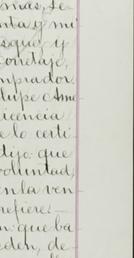 mas, se
nta y mi
sque y
condaje,
mprador
lupe Ama
licencia
e lo certi
dijo: que
voluntad,
en la ven
refiere:—
n: que ba
eden, de-